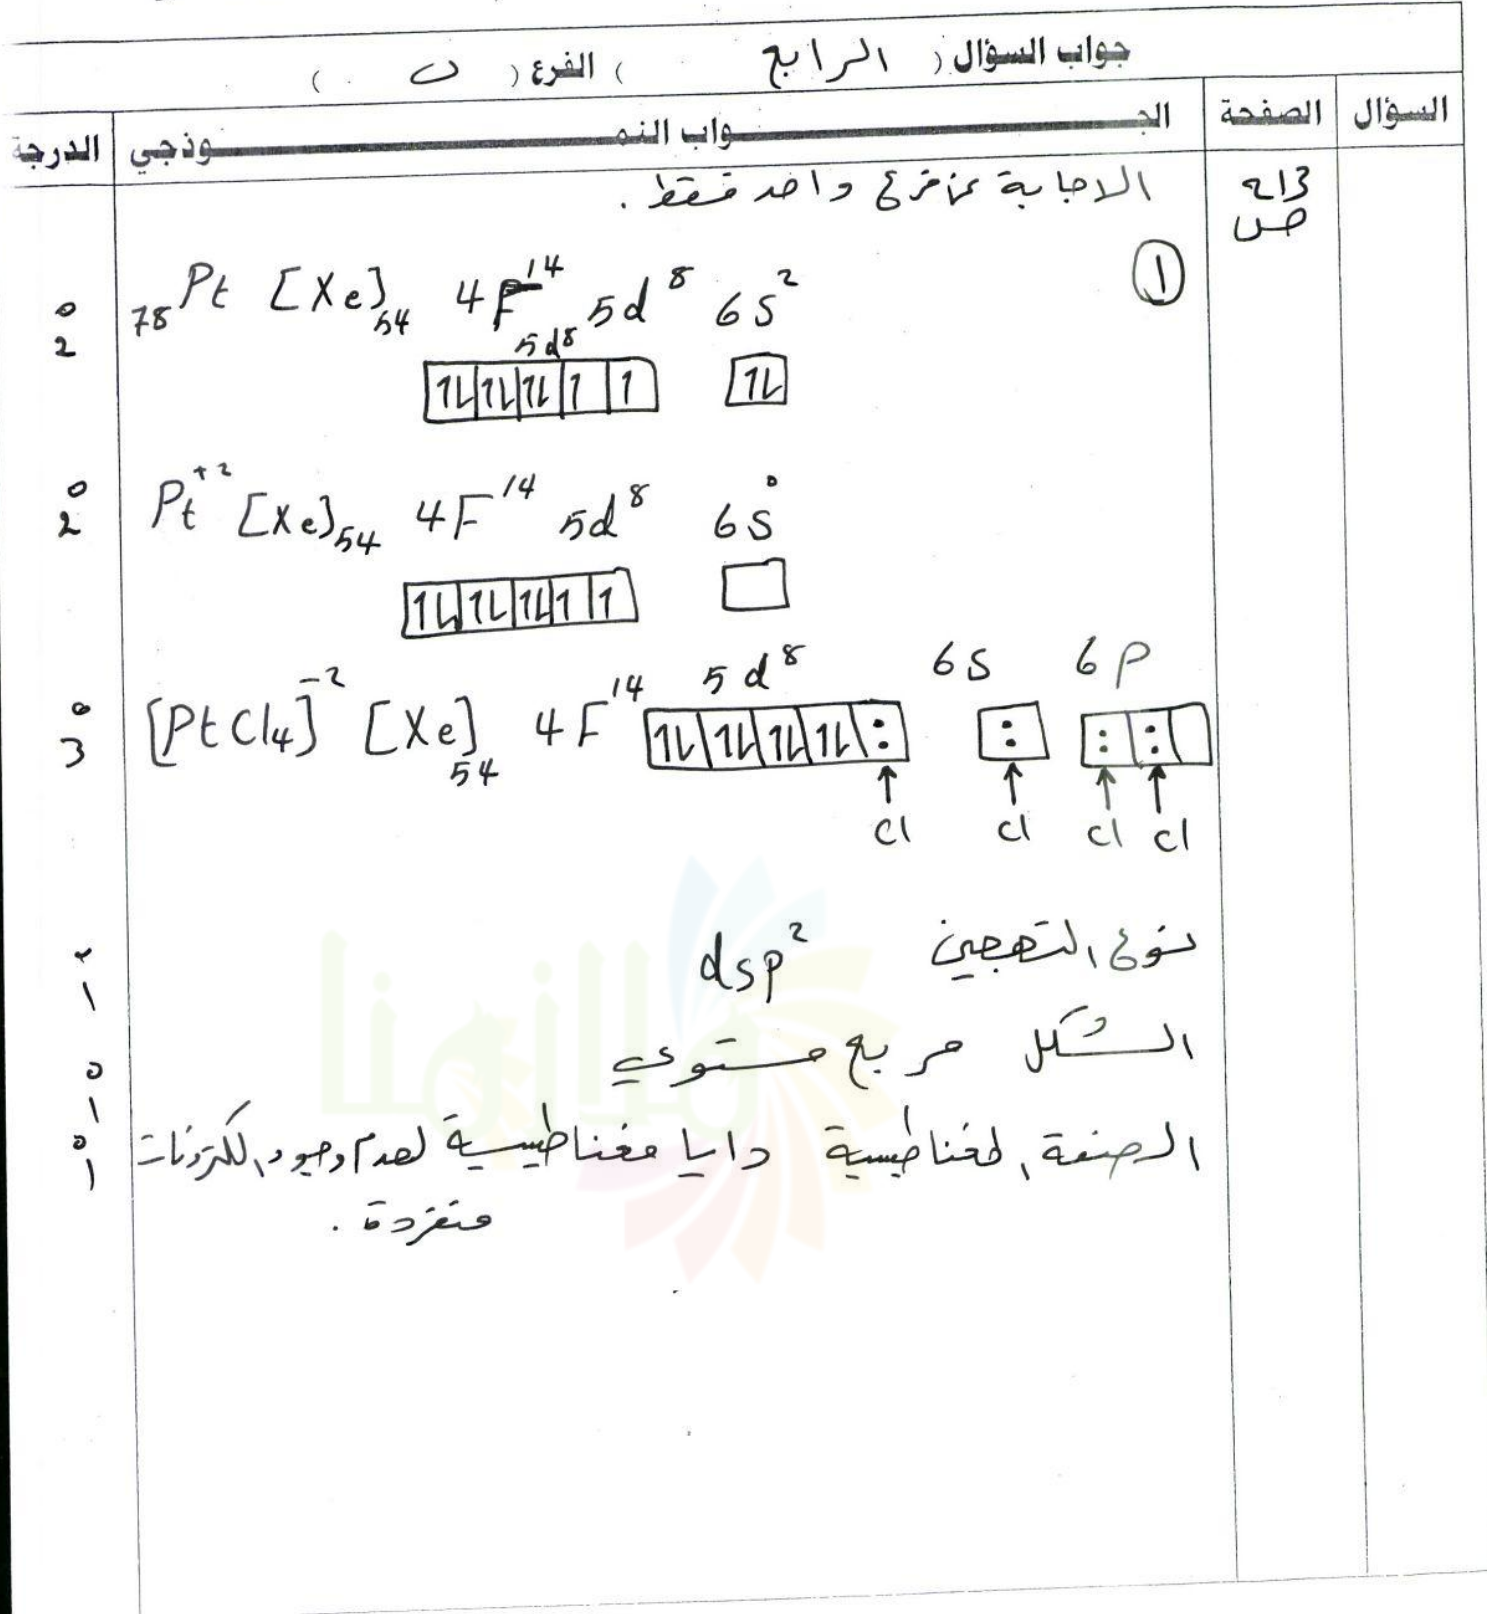 جواب السؤال ( الرابع ) الفرع ( ب )
السؤال الصفحة الجـــواب النمـــوذجي الدرجة
ص 213 الاجابة عن فرع واحد فقط .
①
78Pt [Xe]54 4F14 5d8 6S2
5d8
1L 1L 1L 1 1 1L
Pt+2 [Xe]54 4F14 5d8 6S0
1L 1L 1L 1 1
5d8 6S 6P
[PtCl4]-2 [Xe]54 4F14 1L 1L 1L 1L : : : :
Cl Cl Cl Cl
نوع التهجين dsp2
الشكل مربع مستوي
الصفة المغناطيسية دايا مغناطيسية لعدم وجود الكترونات
منفردة .
ملازمنا